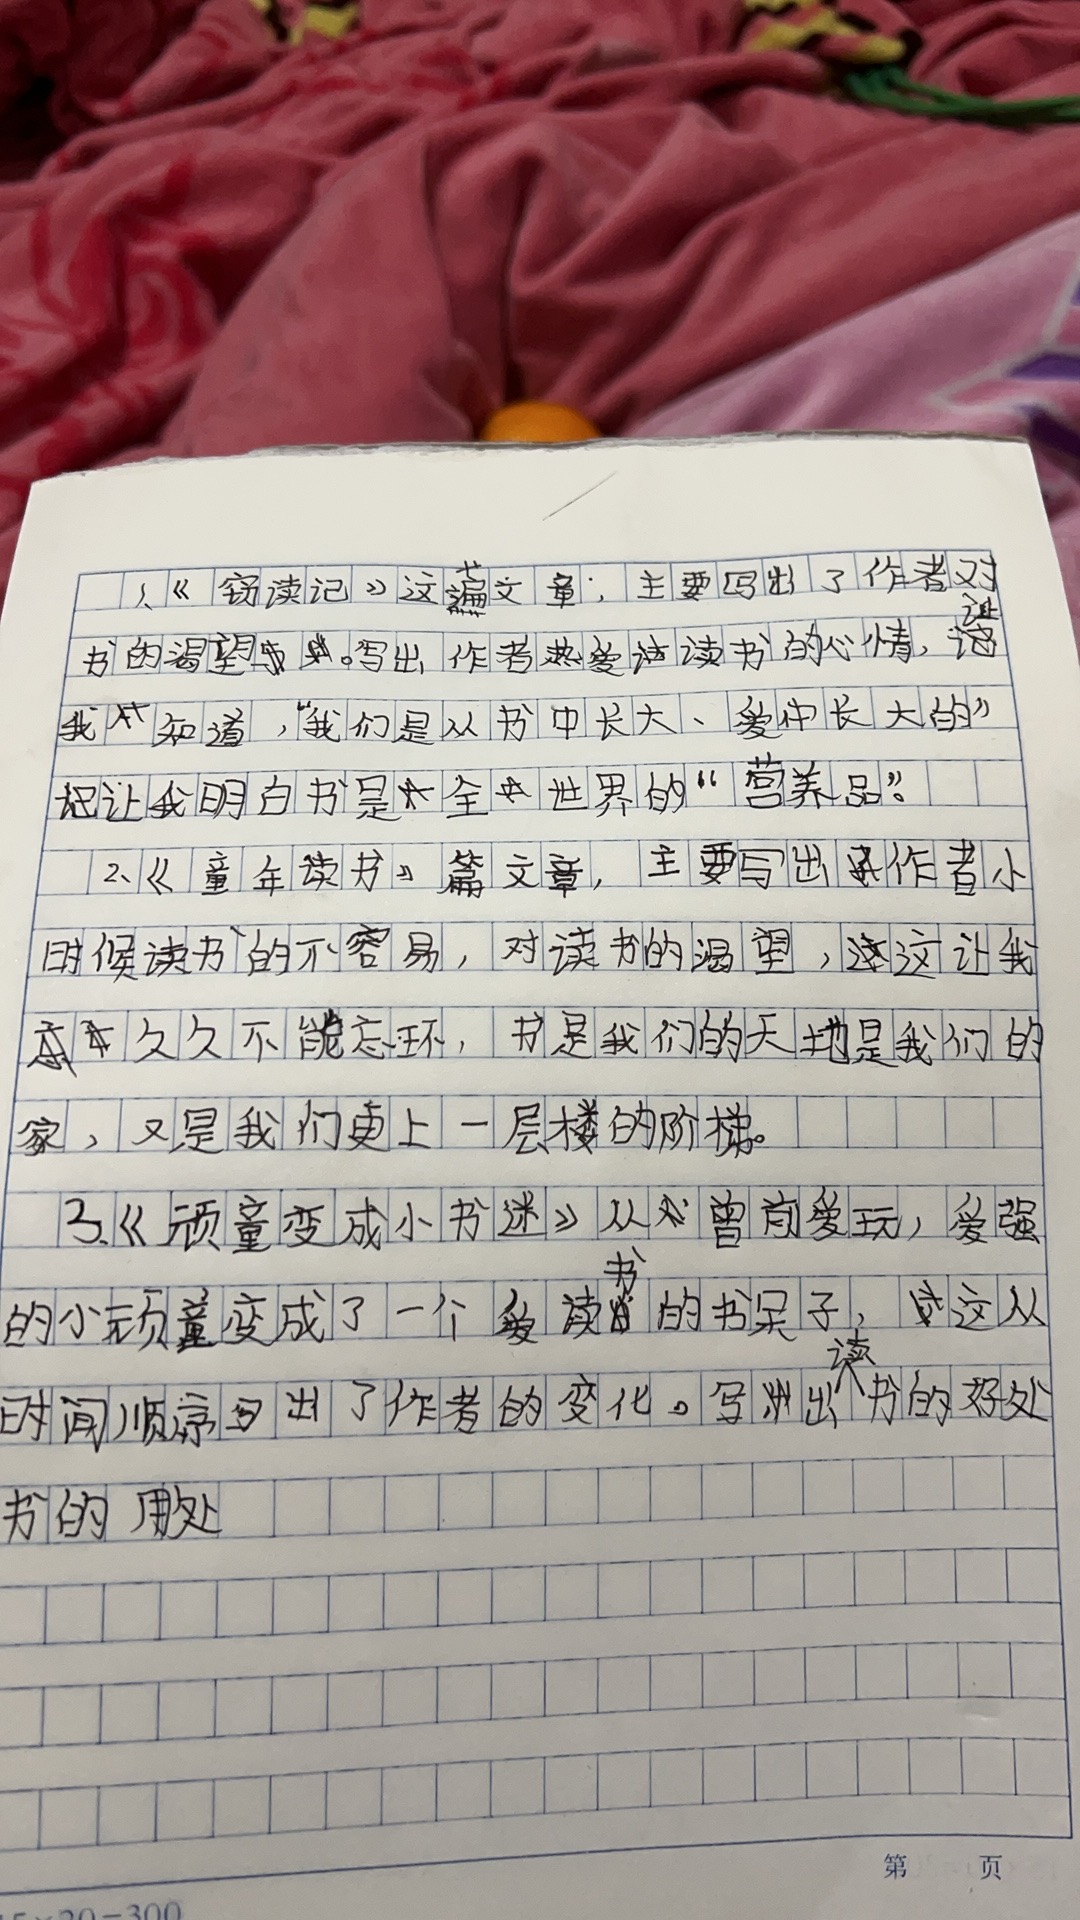 1、《窃读记》这篇文章,主要写出了作者对
书的渴望。写出作者热爱读书的心情,让
我知道,“我们是从书中长大、爱中长大的”
把让我明白书是全世界的“营养品”。
2、《童年读书》篇文章,主要写出作者小
时候读书的不容易,对读书的渴望,这让我
久久不能忘环,书是我们的天地是我们的
家,又是我们更上一层楼的阶梯。
3、《顽童变成小书迷》从曾前爱玩,爱强
的小顽童变成了一个爱读书的书呆子,这从
时间顺序写出了作者的变化。写出读书的好处
书的用处
第 页
15×20=300